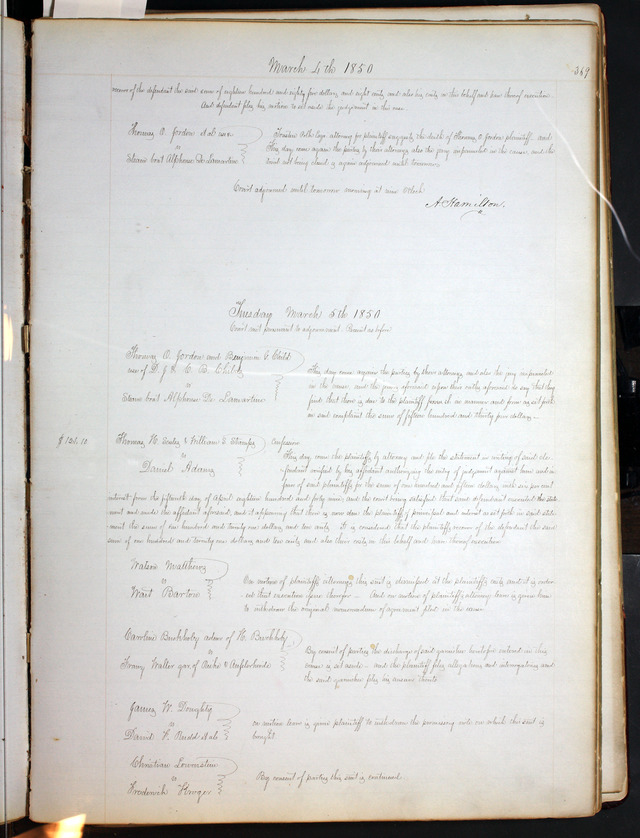 March 4th 1850
369
recover of the defendant the said sum of eighteen hundred and eighty five dollars and eight cents and also his costs in this behalf and have thereof execution
And defendant files his motion to set aside the judgement in this case
Thomas O. Jordon et al use
vs
Steam boat Alphonse De Lamartine
attorney for plaintiff suggests the death of Thomas O Jordon plaintiff and
This day come again the parties by their attorneys also the jury in the cause and the
Court not being closed is again adjourned until tomorrow
Court adjourned until tomorrow morning at nine O'clock
A Hamilton.
Tuesday March 5th 1850
Court met pursuant to adjournment. Present as before
Thomas O. Jordon and Benjamin Childs
use of B. Childs
vs
Steam boat Alphonse De Lamartine
This day come again the parties by their attorneys and also the jury empanneled
in the cause and the jury aforesaid upon their oaths aforesaid do say that they
find that there is due to the plaintiff in manner and form as set forth
in said complaint the sum of fifteen hundred and thirty five dollars
$ 131.10
Thomas H. & William
vs
Daniel Adams
Confession
This day come the plaintiffs by attorney and file the statement in writing of said de-
fendant verified by his affidavit authorizing the entry of judgment against him and in
favor of said plaintiffs for the sum of one hundred and fifteen dollars with six per cent
interest from the fifteenth day of April eighteen hundred and forty nine and the court being satisfied that said defendant executed the state
ment and made the affidavit aforesaid and it appearing that there is now due the plaintiffs of principal and interest as set forth in said state
ment the sum of one hundred and twenty one dollars and ten cents it is considered that the plaintiffs recover of the defendant the said
sum of one hundred and twenty one dollars and ten cents and also their costs in this behalf and have thereof execution
Watson Matthews
vs
Wait Barton
On motion of plaintiffs attorney this suit is dismissed at the plaintiffs costs and it is order
ed that execution issue therefor And on motion of plaintiffs attorney leave is given him
to withdraw the original memorandum of agreement filed in this cause
Caroline admr of H.
vs
Franz Waller gar. of &
By consent of parties the discharge of said garnishee heretofore entered in this
cause is set aside and the plaintiff files allegations and interrogatories and
the said garnishee files his answer thereto
James W. Doughty
vs
David F. Rudd et al
on motion leave is given plaintiff to withdraw the promissory note on which this suit is
brought
Christian Lowenstein
vs
Frederick Kruger
By consent of parties this suit is continued